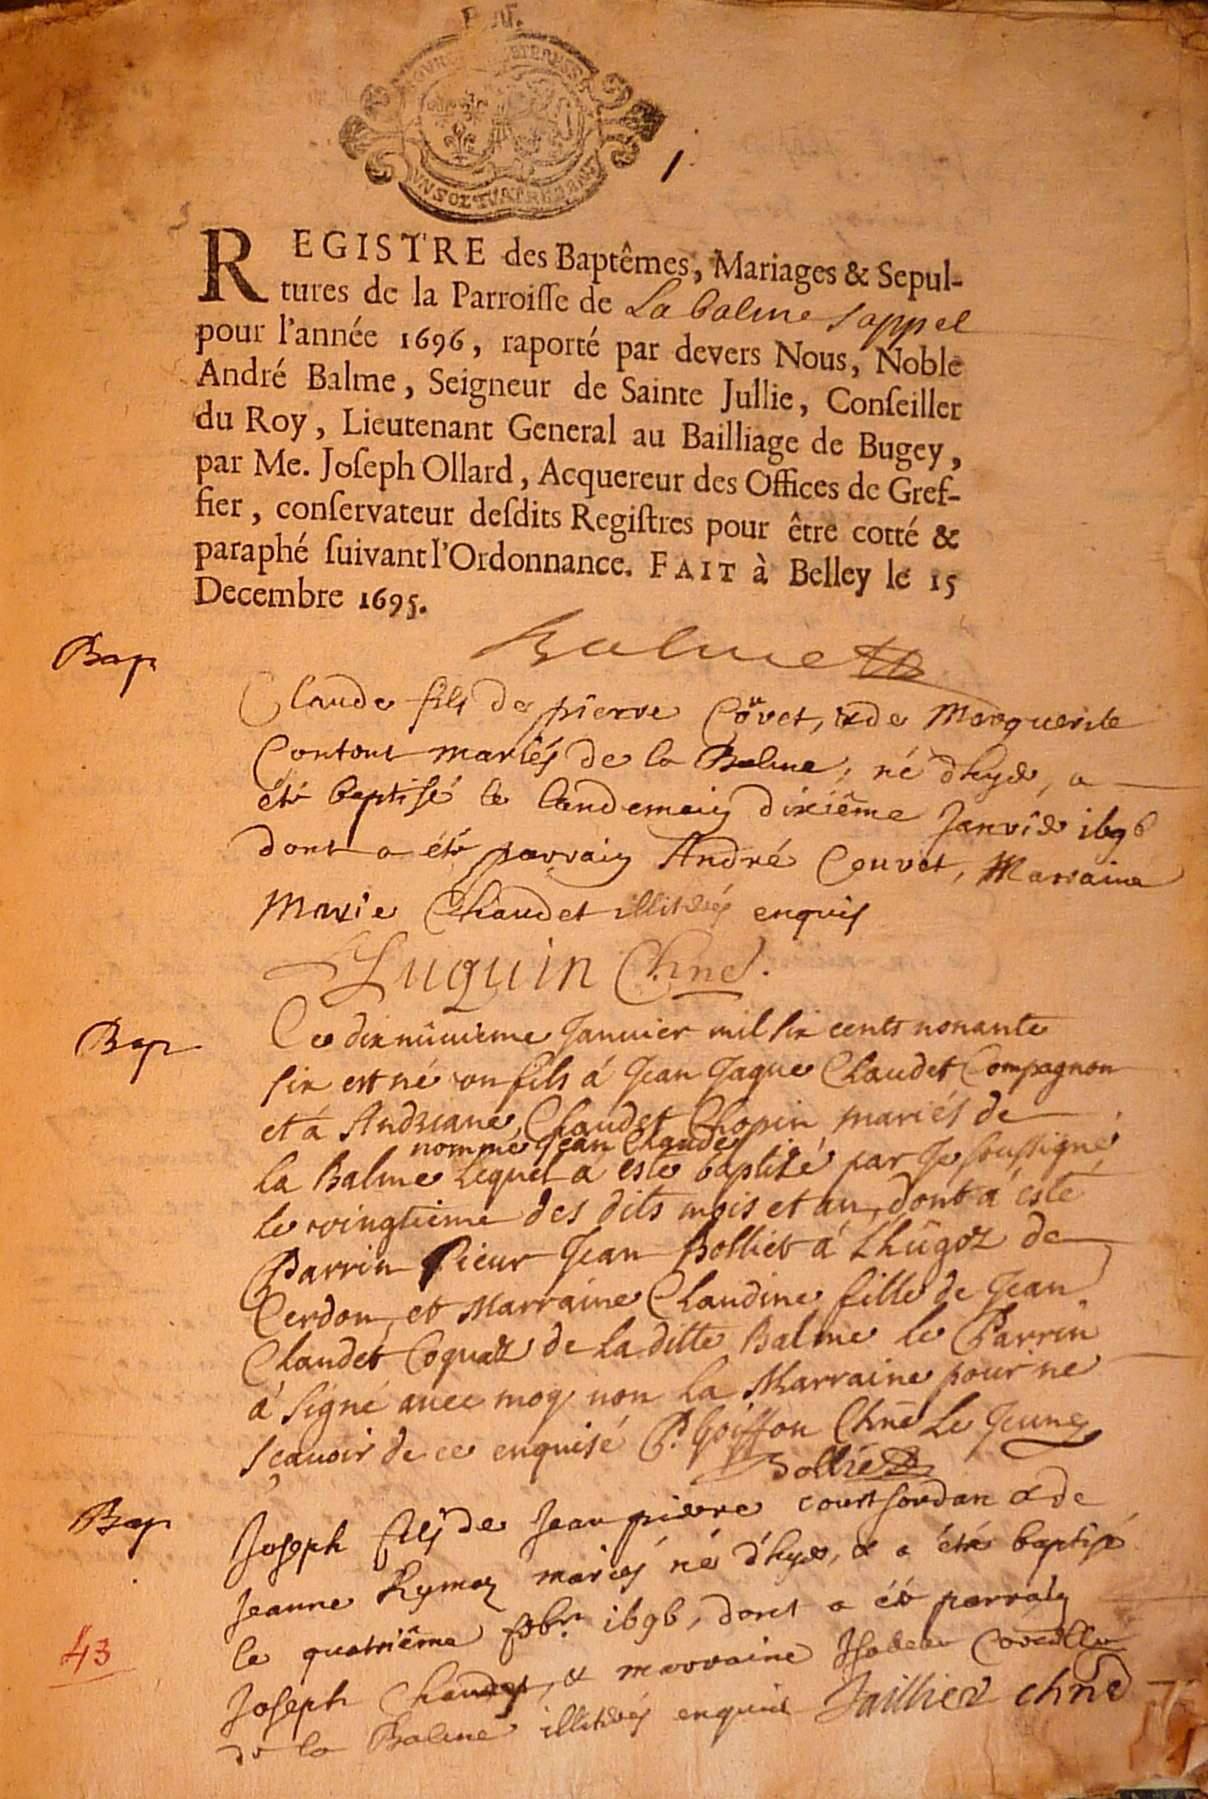 1
REGISTRE des Baptêmes, Mariages & Sepul-
tures de la Parroisse de La balme sappel
pour l'année 1696, raporté par devers Nous, Noble
André Balme, Seigneur de Sainte Jullie, Conseiller
du Roy, Lieutenant General au Bailliage de Bugey,
par Me. Joseph Ollard, Acquereur des Offices de Gref-
fier, conservateur desdits Registres pour être cotté &
paraphé suivant l'Ordonnance. FAIT à Belley le 15
Decembre 1695.
Balme
Bap
Claude fils de pierre Couvet, & de Marguerite
mariés de la Balme, né d'hyer, a
été baptisé le landemain dixiême Janvier 1696
dont a été parrain André Couvet, Marraine
Marie Chaudet illiterés enquis
Luquin Chne.
Bap
Ce dix nûuieme Janvier mil six cents nonante
six est né un fils á Jean Jaque Claudet Compagnon
et á Andreane Claudet Chopin mariés de
nommé Jean Claude
la Balme lequel a esté baptizé par Je soussigné
le vingtieme des dits mois et an, dont a esté
Parrin sieur Jean Bolliet á de
Cerdon, et Marraine Claudine fille de Jean
Claudet Coquaz de la ditte Balme le Parrin
á signé avec moy non la Marraine pour ne
sçavoir de ce enquisé P. Goiffon Chne Le Jeune
Bolliet
Bap
Joseph fils de Jean pierre court Jordan & de
Jeanne Rymoz mariés né d'hyer, & a été baptisé
le quatriême 1696, dont a été parrain
Joseph & marraine Isabeau
de la Balme illiterés enquis Jaillier chne
43